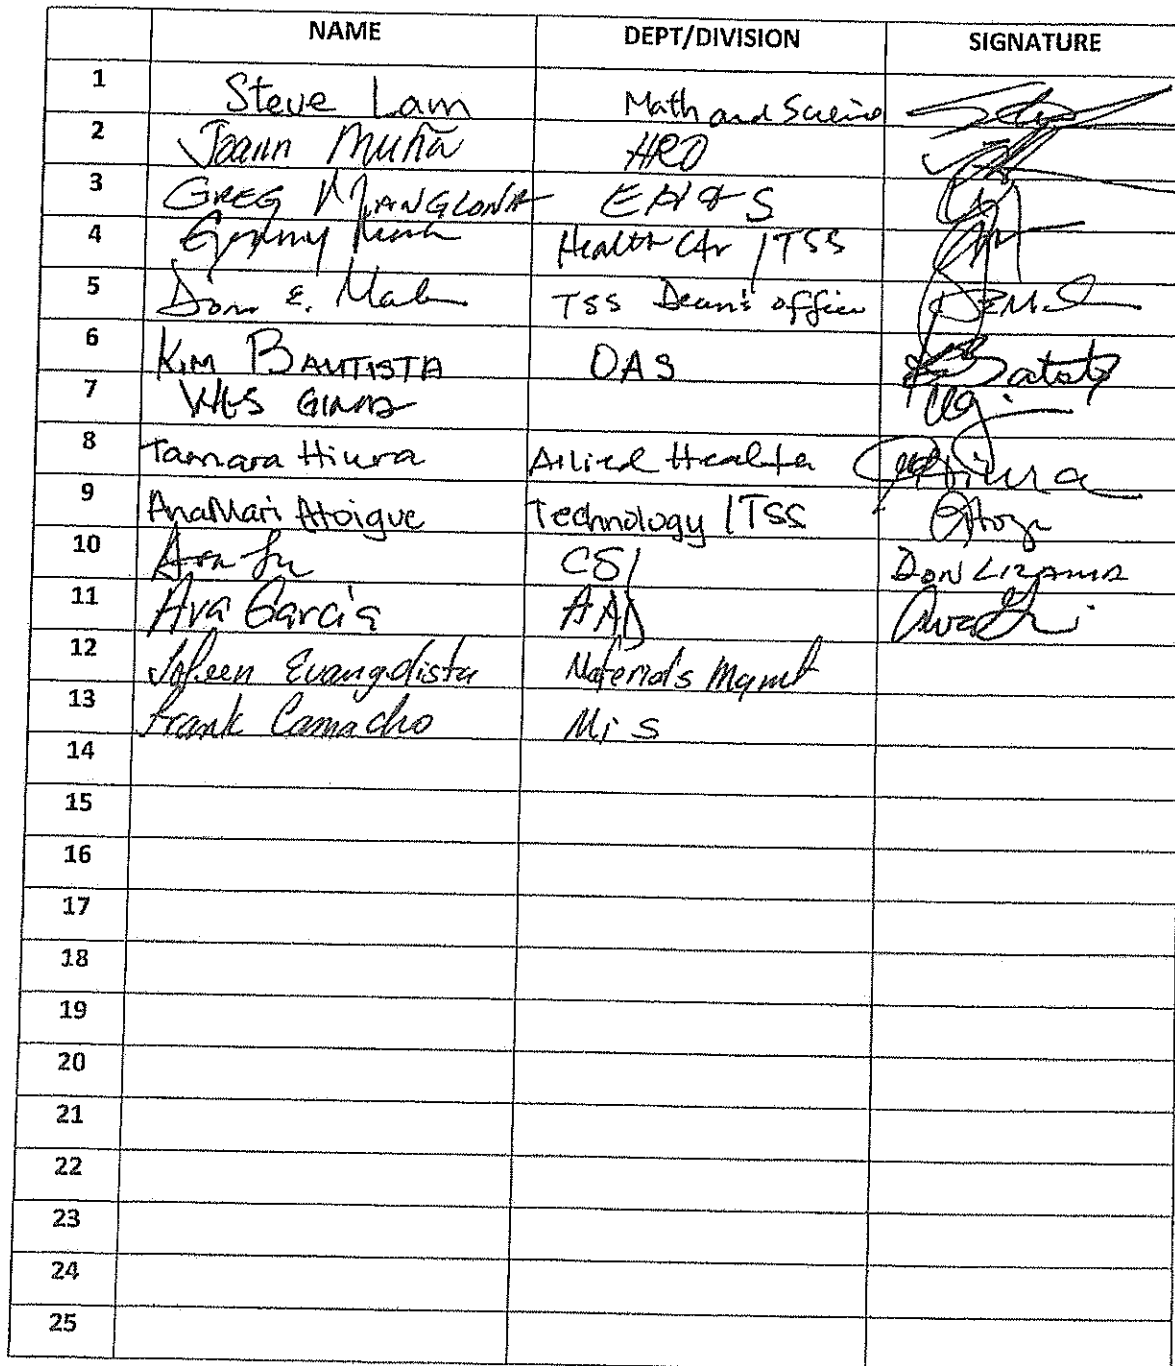 NAME DEPT/DIVISION SIGNATURE
1 Steve Lam Math and Science
2 Joann Muña HRO
3 GREG MANGLONA EH&S
4 Health Ctr / TSS
5 Don E. TSS Dean's office
6 KIM BAUTISTA OAS
7 WES GIMA
8 Tamara Hiura Allied Health Hiura
9 AnaMari Atoigue Technology / TSS
10 DON LIZAMA
11 Ava Garcia AAD
12 Joleen Evangelista Materials Mgmt
13 Frank Camacho MiS
14
15
16
17
18
19
20
21
22
23
24
25